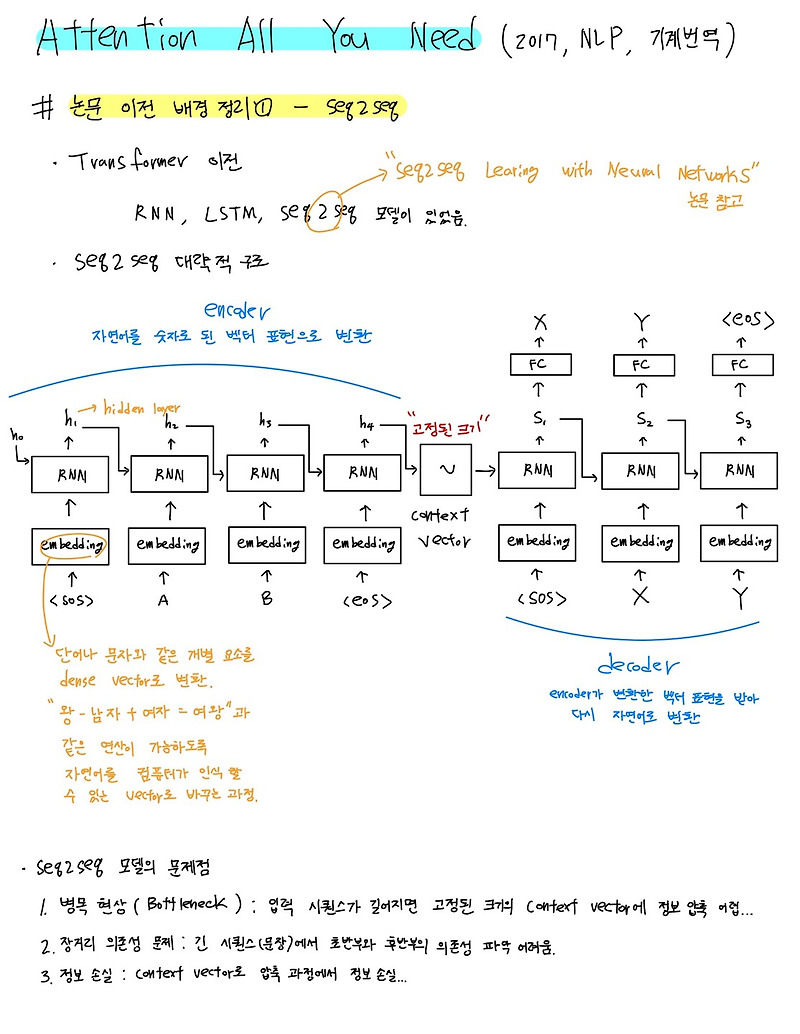 Attention All You Need (2017, NLP, 기계번역)
# 논문 이전 배경 정리① - seq2seq
· Transformer 이전
"seq2seq Learing with Neural Networks"
논문 참고
RNN, LSTM, seq2seq 모델이 있었음.
· seq2seq 대략적 구조
encoder
자연어를 숫자로 된 벡터 표현으로 변환
X Y <eos>
FC FC FC
h₀ h₁ → hidden layer h₂ h₃ h₄ "고정된 크기" S₁ S₂ S₃
RNN RNN RNN RNN ~ RNN RNN RNN
context
vector
embedding embedding embedding embedding embedding embedding embedding
<sos> A B <eos> <sos> X Y
단어나 문자와 같은 개별 요소를
dense vector로 변환.
"왕 - 남자 + 여자 = 여왕"과
같은 연산이 가능하도록
자연어를 컴퓨터가 인식 할
수 있는 vector로 바꾸는 과정.
decoder
encoder가 변환한 벡터 표현을 받아
다시 자연어로 변환
· seq2seq 모델의 문제점
1. 병목 현상 (Bottleneck) : 입력 시퀀스가 길어지면 고정된 크기의 context vector에 정보 압축 어렵...
2. 장거리 의존성 문제 : 긴 시퀀스(문장)에서 초반부와 후반부의 의존성 파악 어려움.
3. 정보 손실 : context vector로 압축 과정에서 정보 손실...